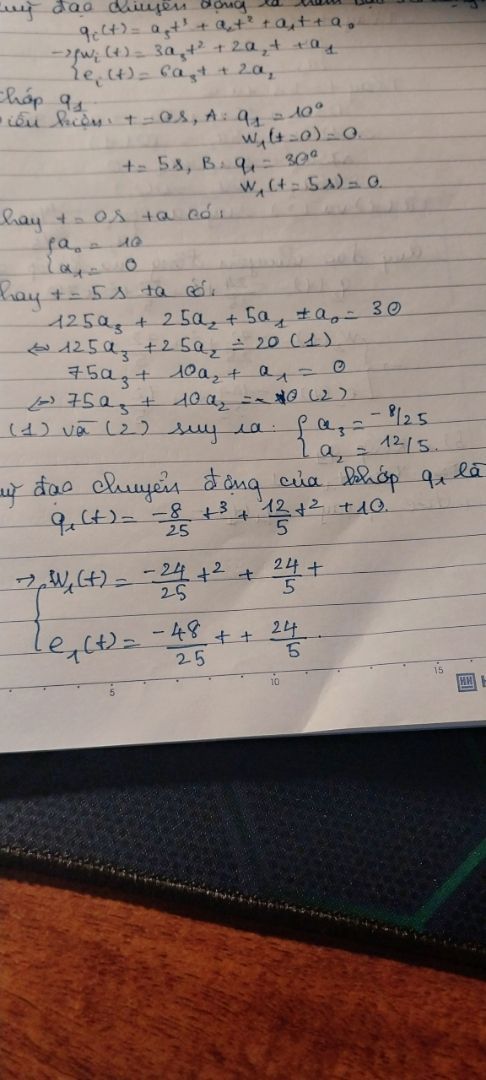 đạo chuyển động là hàm bậc
qᵢ(t) = a₃t³ + a₂t² + a₁t + a₀
→ { wᵢ(t) = 3a₃t² + 2a₂t + a₁
{ eᵢ(t) = 6a₃t + 2a₂
khớp q₁
kiện: t = 0s, A: q₁ = 10°
w₁(t=0) = 0.
t = 5s, B: q₁ = 30°
w₁(t = 5s) = 0.
hay t = 0s ta có:
{ a₀ = 10
{ a₁ = 0
hay t = 5s ta có:
125a₃ + 25a₂ + 5a₁ + a₀ = 30
⇔ 125a₃ + 25a₂ = 20 (1)
75a₃ + 10a₂ + a₁ = 0
⇔ 75a₃ + 10a₂ = 0 (2)
(1) và (2) suy ra: { a₃ = -8/25
{ a₂ = 12/5.
đạo chuyển động của khớp q₁ là
q₁(t) = -8/25 t³ + 12/5 t² + 10.
→ { w₁(t) = -24/25 t² + 24/5 t
{ e₁(t) = -48/25 t + 24/5.
5 10 15